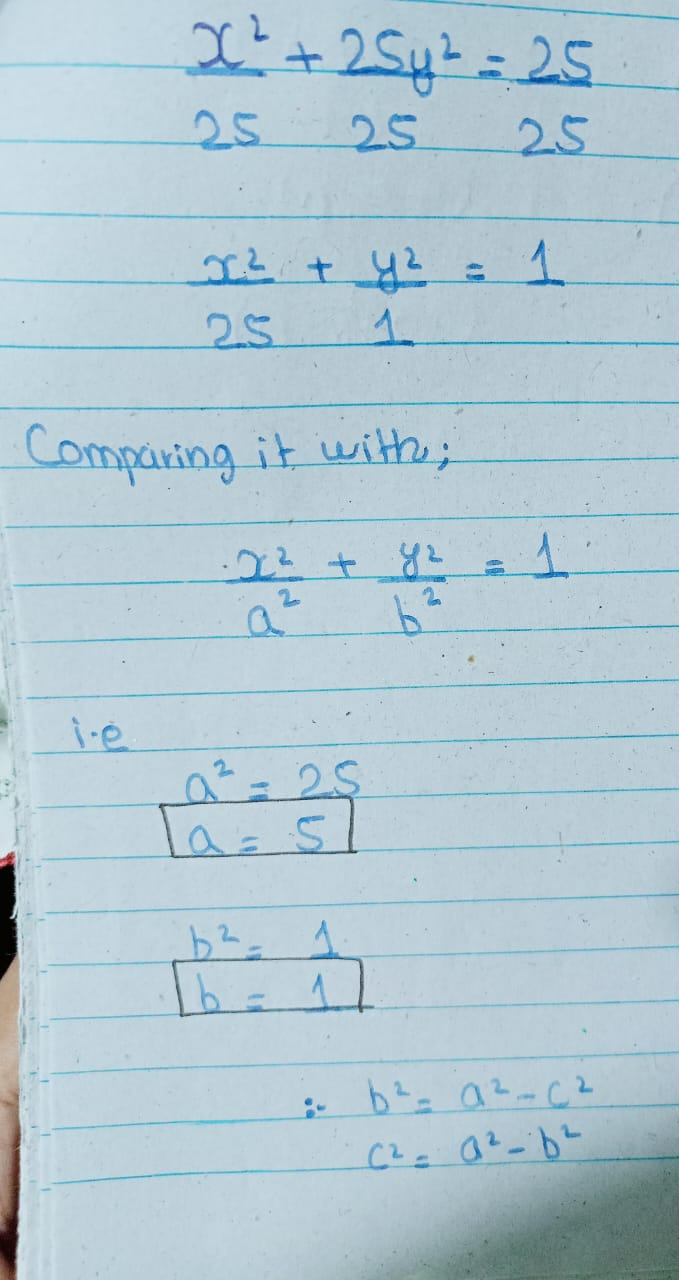 x² + 25y² = 25
25 25 25
x² + y² = 1
25 1
Comparing it with;
x² + y² = 1
a² b²
i.e
a² = 25
a = 5
b² = 1
b = 1
:- b² = a² - c²
c² = a² - b²